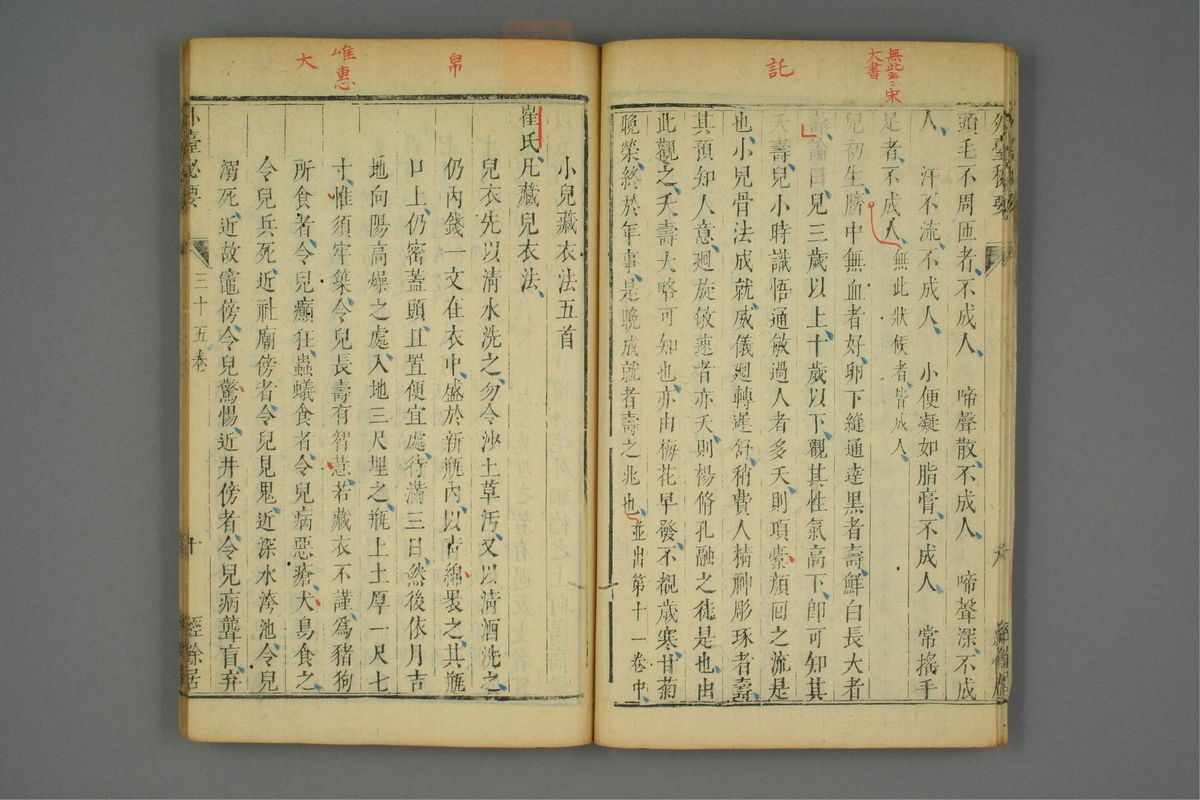 無此至宋
大書
託
外臺秘要
頭毛不周匝者不成人 啼聲散不成人 啼聲深不成
人 汗不流不成人 小便凝如脂膏不成人 常搖手
是者不成人無此狀候者皆成人
兒初生臍中無血者好卵下縫通達黑者壽鮮白長大者
壽論曰兒三歲以上十歲以下觀其性氣高下卽可知其
夭壽兒小時識悟通敏過人者多夭則項槖顏回之流是
也小兒骨法成就威儀廻轉遲舒稍費人精神彫琢者壽
其預知人意廻旋敏速者亦夭則楊脩孔融之徒是也由
此觀之夭壽大略可知也亦由梅花早發不覩歲寒甘菊
晚榮終於年事是晚成就者壽之兆也並出第十一卷中
帛
惟惠
大
小兒藏衣法五首
崔氏凡藏兒衣法
兒衣先以清水洗之勿令沙土草汚又以清酒洗之
仍內錢一文在衣中盛於新瓶內以青綿裹之其瓶
口上仍密蓋頭且置便宜處待滿三日然後依月吉
地向陽高燥之處入地三尺埋之瓶上土厚一尺七
寸惟須牢築令兒長壽有智慧若藏衣不謹為豬狗
所食者令兒癲狂蟲蟻食者令兒病惡瘡犬鳥食之
令兒兵死近社廟傍者令兒見鬼近深水洿池令兒
溺死近故竈傍令兒驚惕近井傍者令兒病聾盲弃
外臺秘要
三十五卷
十
經餘居